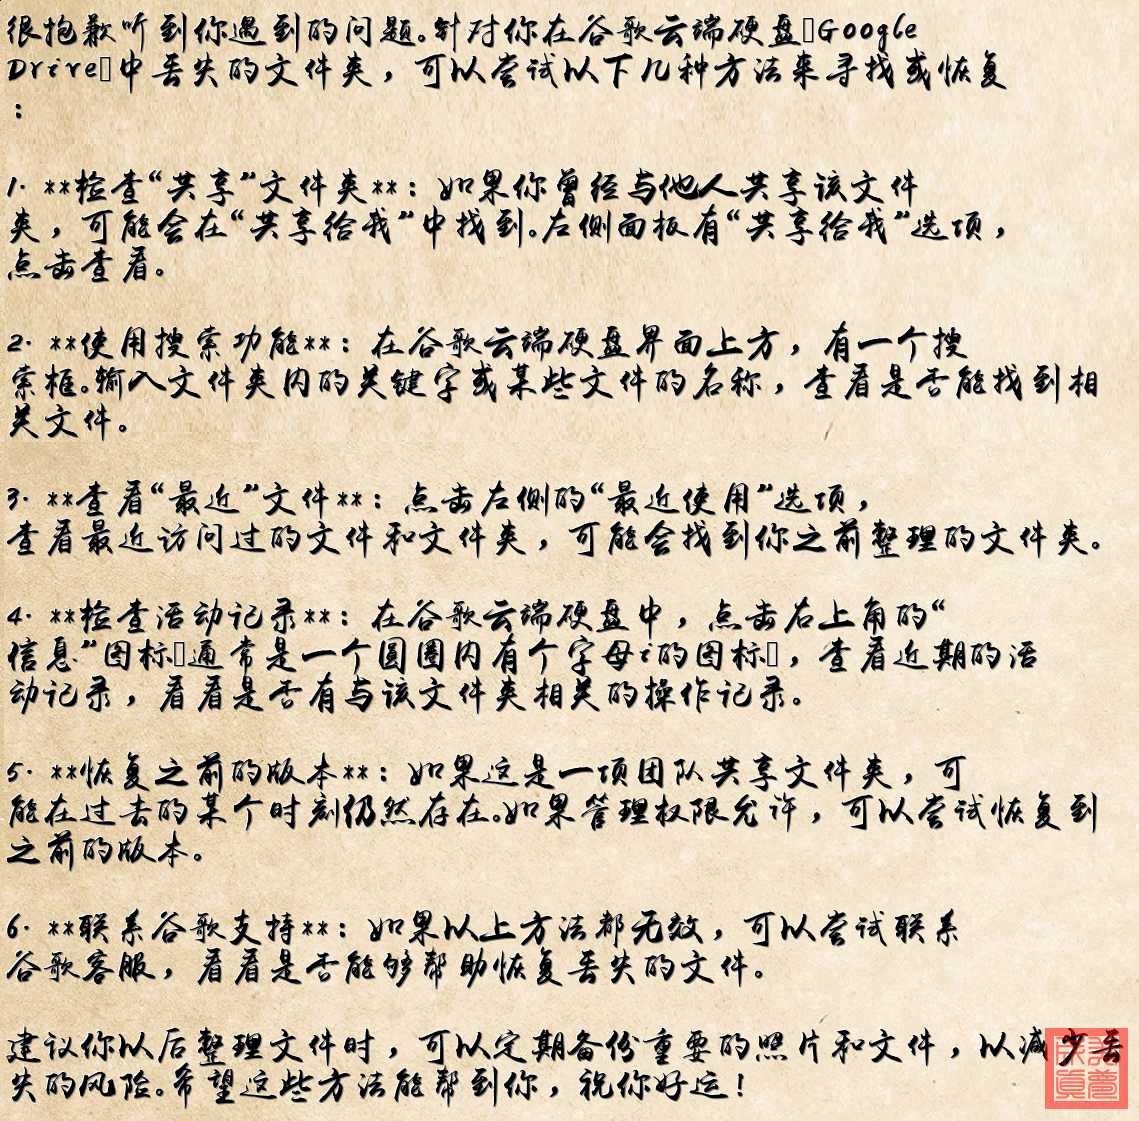 很抱歉听到你遇到的问题。针对你在谷歌云端硬盘▯Google
Drive▯中丢失的文件夹，可以尝试以下几种方法来寻找或恢复
：
1. **检查“共享”文件夹**：如果你曾经与他人共享该文件
夹，可能会在“共享给我”中找到。左侧面板有“共享给我”选项，
点击查看。
2. **使用搜索功能**：在谷歌云端硬盘界面上方，有一个搜
索框。输入文件夹内的关键字或某些文件的名称，查看是否能找到相
关文件。
3. **查看“最近”文件**：点击左侧的“最近使用”选项，
查看最近访问过的文件和文件夹，可能会找到你之前整理的文件夹。
4. **检查活动记录**：在谷歌云端硬盘中，点击右上角的“
信息”图标▯通常是一个圆圈内有个字母i的图标▯，查看近期的活
动记录，看看是否有与该文件夹相关的操作记录。
5. **恢复之前的版本**：如果这是一项团队共享文件夹，可
能在过去的某个时刻仍然存在。如果管理权限允许，可以尝试恢复到
之前的版本。
6. **联系谷歌支持**：如果以上方法都无效，可以尝试联系
谷歌客服，看看是否能够帮助恢复丢失的文件。
建议你以后整理文件时，可以定期备份重要的照片和文件，以减少丢
失的风险。希望这些方法能帮到你，祝你好运！